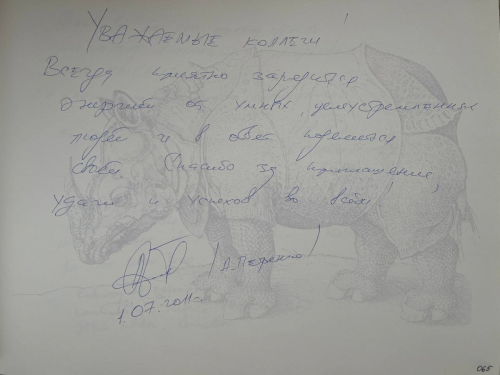 Уважаемые коллеги!
Всегда приятно зарядится
энергией от умных, целеустремленных
людей и в ответ поделится
своей. Спасибо за приглашение,
удачи и успехов во всём!
1.07.2011г.
065